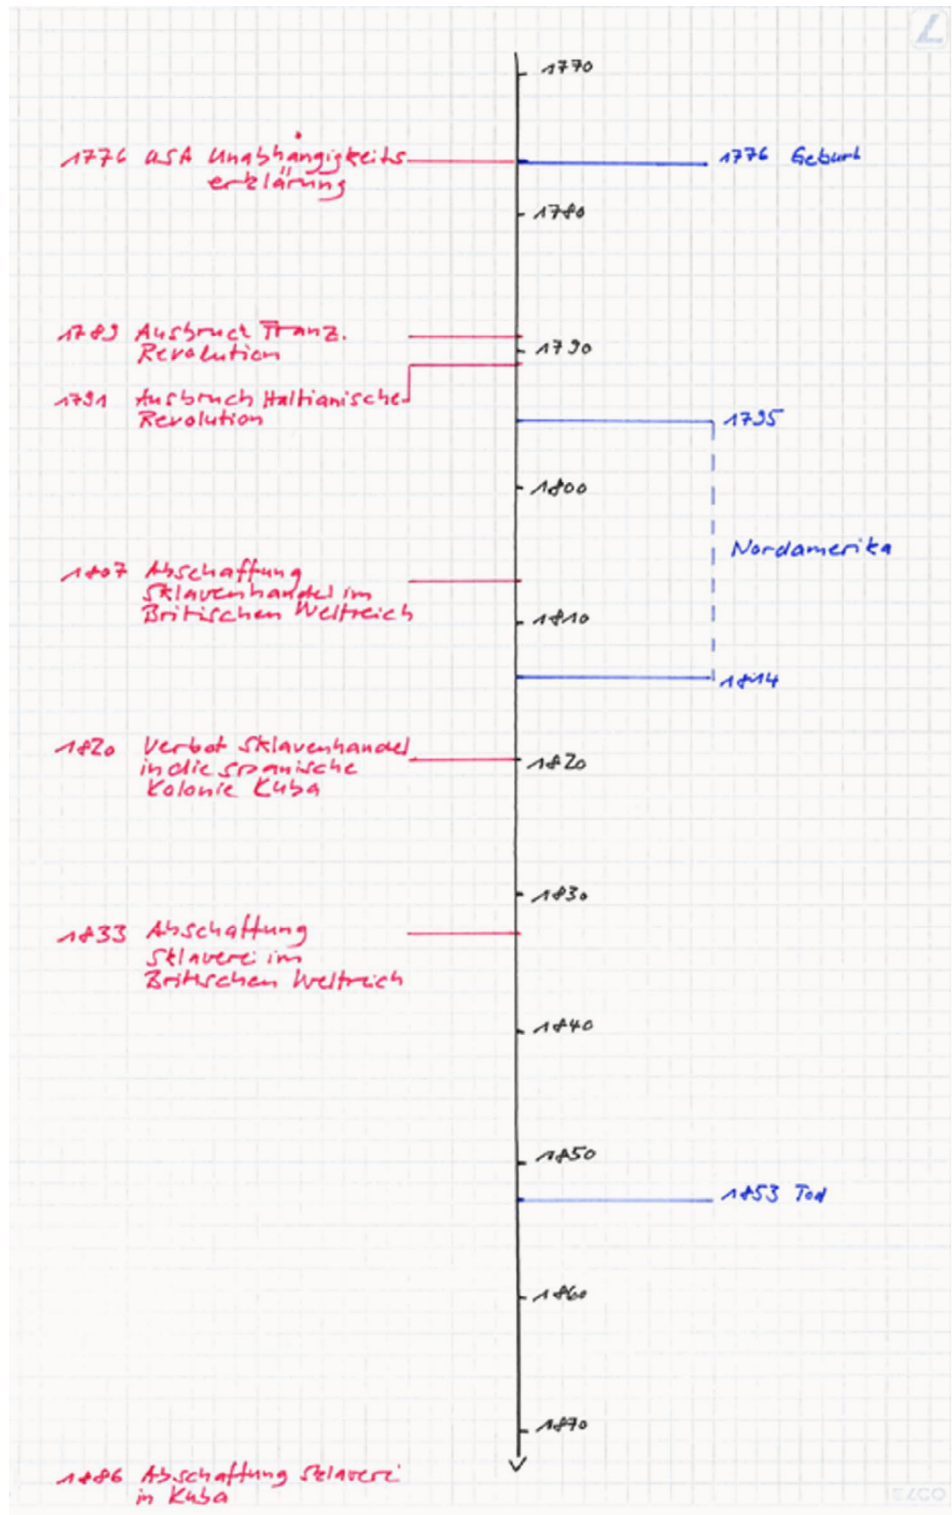 1770
1776 USA Unabhängigkeits
erklärung
1776 Geburt
1780
1789 Ausbruch Franz.
Revolution
1790
1791 Ausbruch Haitianische
Revolution
1795
1800
Nordamerika
1807 Abschaffung
Sklavenhandel im
Britischen Weltreich
1810
1814
1820 Verbot Sklavenhandel
in die spanische
Kolonie Kuba
1820
1830
1833 Abschaffung
Sklaverei im
Britischen Weltreich
1840
1850
1853 Tod
1860
1870
1886 Abschaffung Sklaverei
in Kuba
ELCO